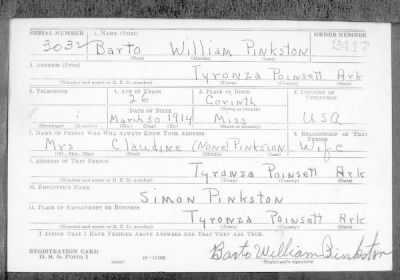 SERIAL NUMBER 1. NAME (Print) ORDER NUMBER
3032 Barto William Pinkston 2117
(First) (Middle) (Last)
2. ADDRESS (Print)
Tyronza Poinsett Ark
(Number and street or R. F. D. number) (Town) (County) (State)
3. TELEPHONE 4. AGE IN YEARS 5. PLACE OF BIRTH 6. COUNTRY OF CITIZENSHIP
26 Corinth
DATE OF BIRTH (Town or county)
March 30 1914 Miss USA
(Exchange) (Number) (Mo.) (Day) (Yr.) (State or country)
7. NAME OF PERSON WHO WILL ALWAYS KNOW YOUR ADDRESS 8. RELATIONSHIP OF THAT PERSON
Mrs Claudine (None) Pinkston Wife
(Mr., Mrs., Miss) (First) (Middle) (Last)
9. ADDRESS OF THAT PERSON
Tyronza Poinsett Ark
(Number and street or R. F. D. number) (Town) (County) (State)
10. EMPLOYER'S NAME
Simon Pinkston
11. PLACE OF EMPLOYMENT OR BUSINESS
Tyronza Poinsett Ark
(Number and street or R. F. D. number) (Town) (County) (State)
I AFFIRM THAT I HAVE VERIFIED ABOVE ANSWERS AND THAT THEY ARE TRUE.
REGISTRATION CARD
D. S. S. Form 1 Barto William Pinkston
(Registrant's signature)